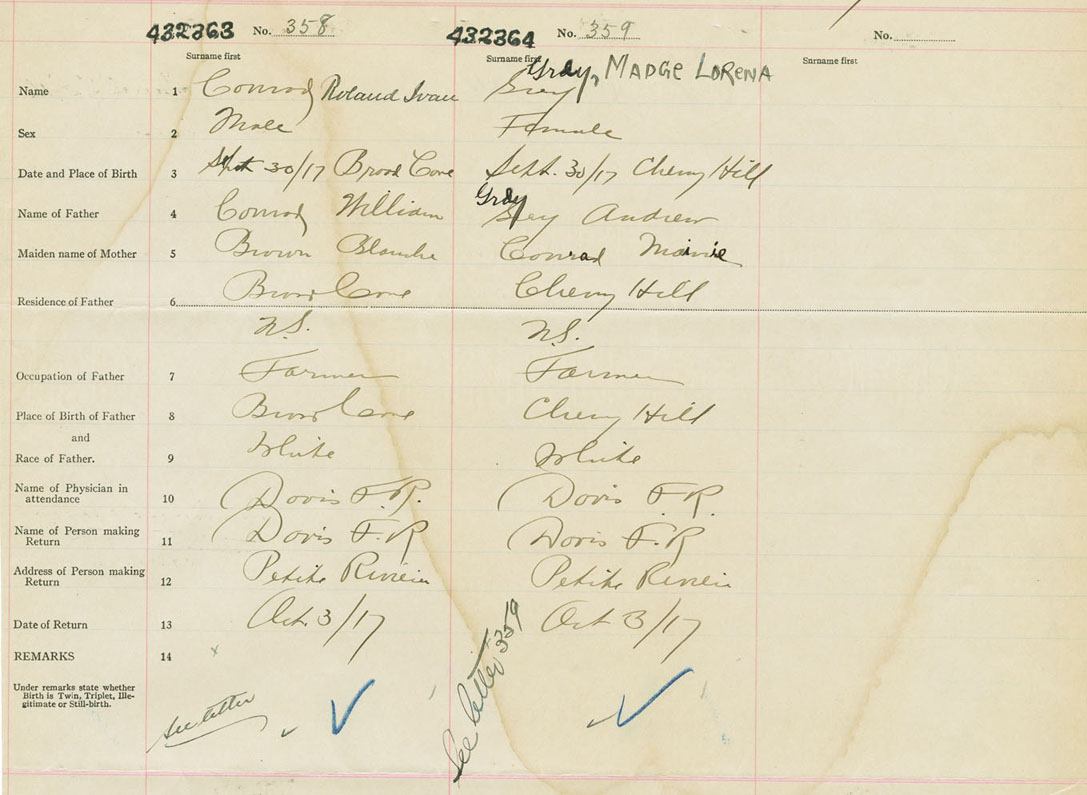 432363 No. 358 432364 No. 359 No.
Surname first Surname first Surname first
Gray, MADGE LORENA
Name 1 Conrad Roland Ivan Grey
Sex 2 Male Female
Date and Place of Birth 3 Sept 30/17 Broad Cove Sept. 30/17 Cherry Hill
Gray
Name of Father 4 Conrad William Grey Andrew
Maiden name of Mother 5 Brown Blanche Conrad Mamie
Residence of Father 6 Broad Cove Cherry Hill
N.S. N.S.
Occupation of Father 7 Farmer Farmer
Place of Birth of Father 8 Broad Cove Cherry Hill
and
Race of Father. 9 White White
Name of Physician in
attendance 10 Davis F. R. Davis F. R.
Name of Person making
Return 11 Davis F. R Davis F. R
Address of Person making
Return 12 Petite Riviere Petite Riviere
Date of Return 13 Oct. 3/17 Oct 3/17
REMARKS 14 x
Under remarks state whether
Birth is Twin, Triplet, Ille-
gitimate or Still-birth.
See letter
See letter 359